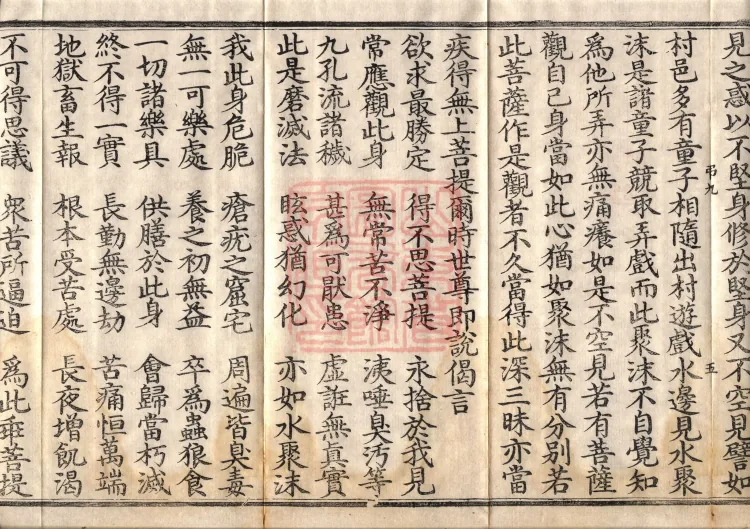 見之惑以不堅身修於堅身又不空見譬如
村邑多有童子相隨出村遊戲水邊見水聚
弔九
五
沫是諸童子競取弄戲而此聚沫不自覺知
為他所弄亦無痛癢如是不空見若有菩薩
觀自己身當如此心猶如聚沫無有分別若
此菩薩作是觀者不久當得此深三昧亦當
疾得無上菩提爾時世尊即說偈言
欲求最勝定 得不思菩提 永捨於我見
常應觀此身 無常苦不淨 洟唾臭汚等
九孔流諸穢 甚爲可厭患 虛誑無真實
此是磨滅法 眩惑猶幻化 亦如水聚沫
我此身危脆 瘡疣之窟宅 周遍皆臭毒
無一可樂處 養之初無益 卒爲蟲狼食
一切諸樂具 供膳於此身 會歸當朽滅
終不得一實 長勤無邊劫 苦痛恒萬端
地獄畜生報 根本受苦處 長夜增飢渴
不可得思議 衆苦所逼迫 爲此乖菩提